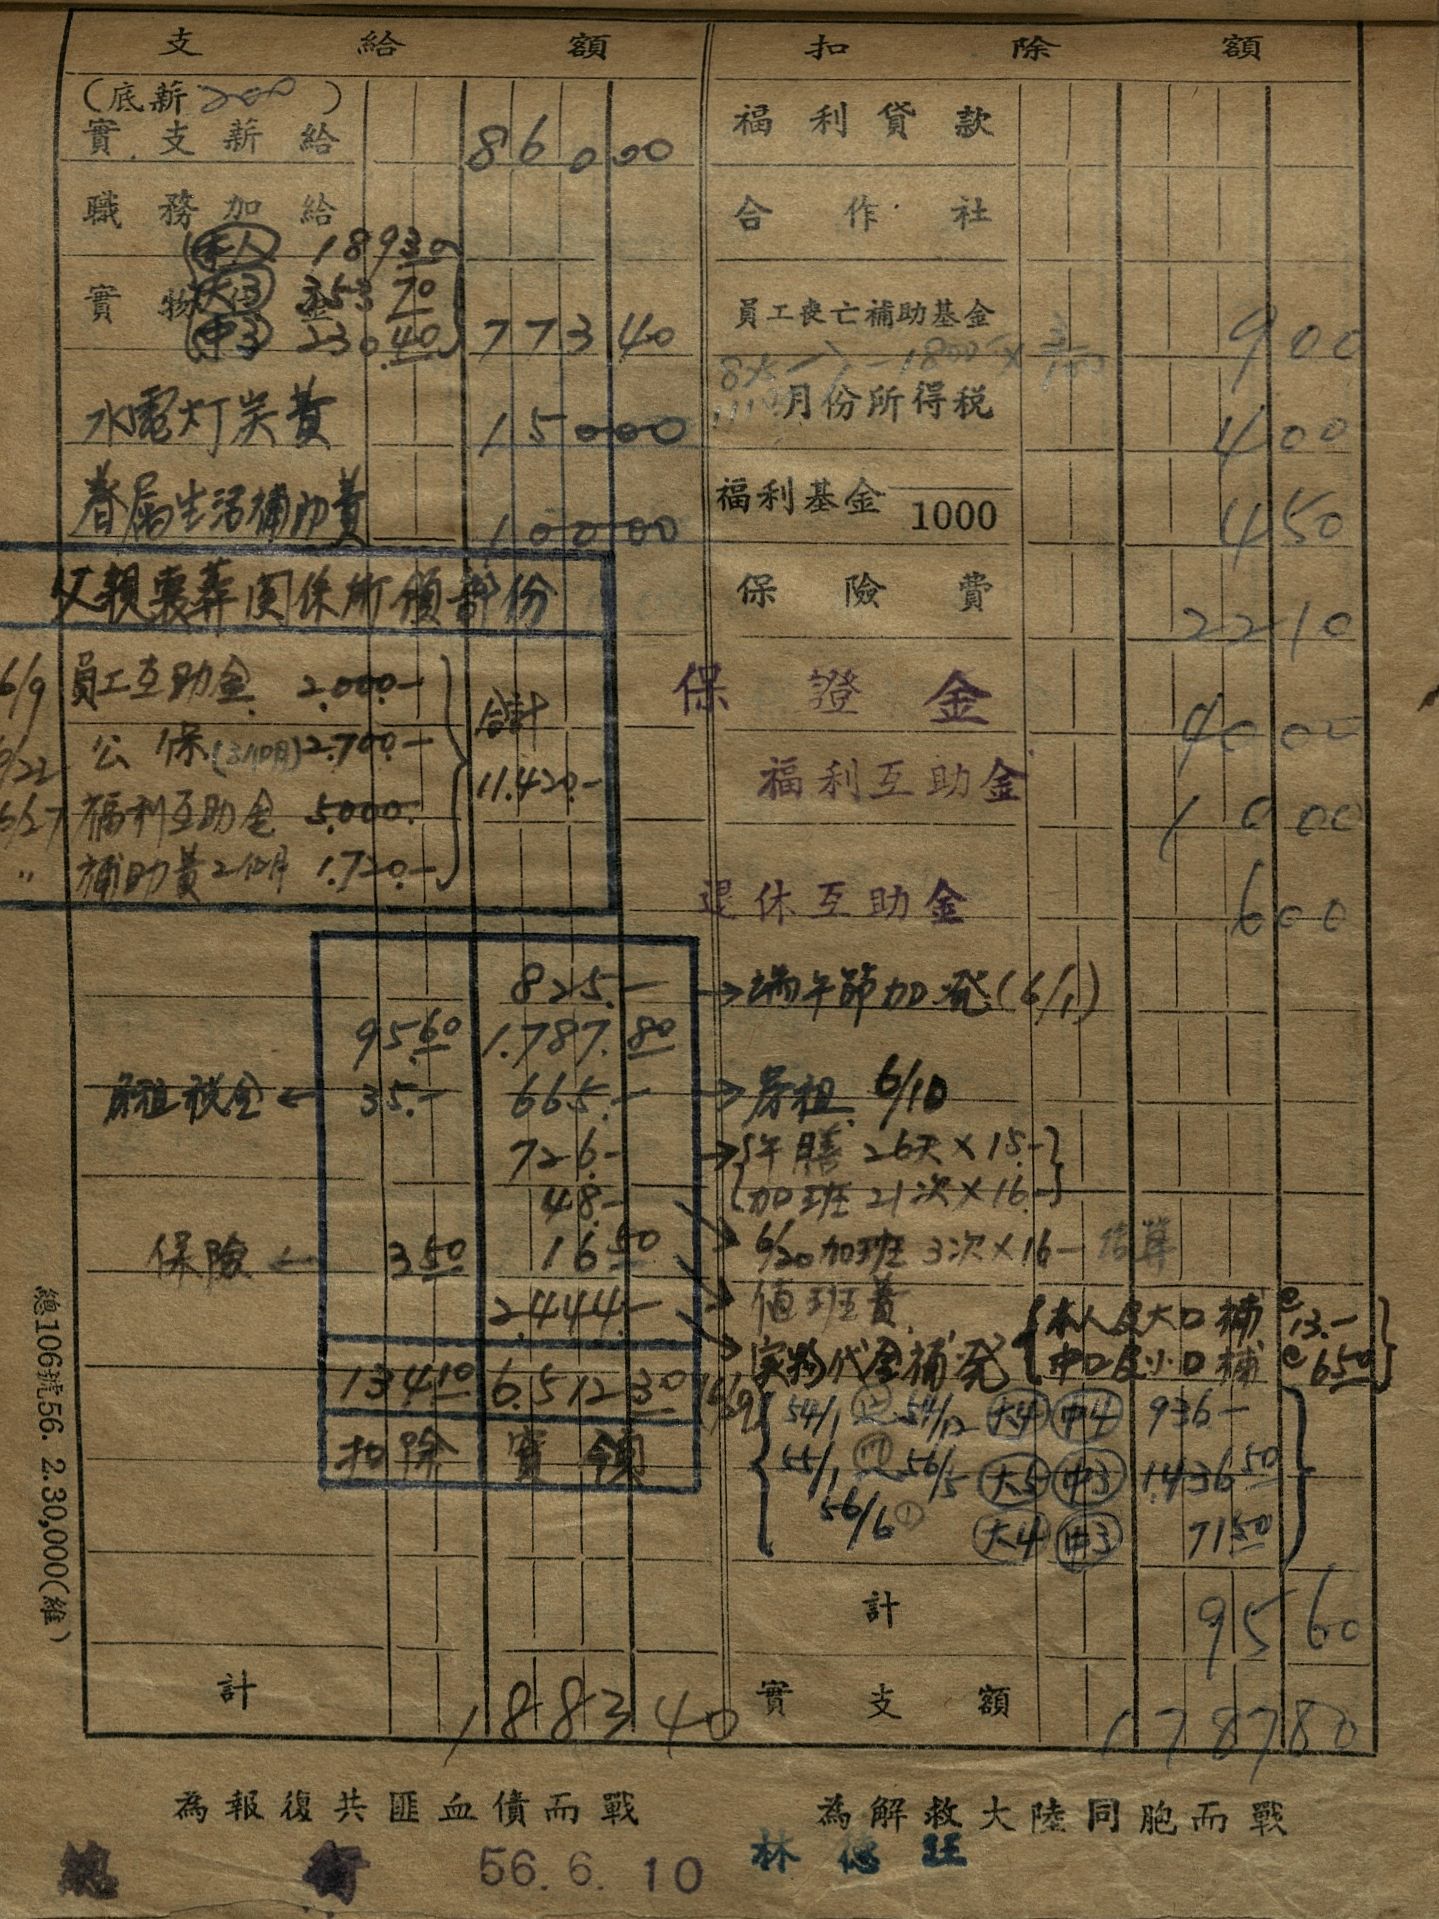 支給額
(底薪200)
實支薪給 86000
職務加給
本人 18930
實物代金 大3 35370
中3 23040 77340
水電灯炭費 15000
眷屬生活補助費 10000
父親喪葬関係所領部份
6/9 員工互助金 2.000.-
6/22 公保(3個月) 2.700.-
合計 11.420.-
6/27 福利互助金 5.000.-
〃 補助費2個月 1.720.-
扣除額
福利貸款
合作社
員工喪亡補助基金 900
月份所得税 400
福利基金 1000 450
保險費 2210
保證金 4000
福利互助金 1000
退休互助金 600
825.- → 端午節加発(6/1)
95.60 1.787.80
房租税金 ← 35.- 665.- → 房租 6/10
726.- → 午膳 26天×15.-
加班 21次×16.-
48.- 6/20加班 3次×16- 结算
保險 ← 350 1650 值班費
2.444.- 実物代金補発 本人及大口補@13.-
中口及小口補@650
13410 6.51230
扣除 實領
6/29 54/1 54/12 大4 中4 936-
55/1 56/5 大5 中3 1.43650
56/6 大4 中3 7150
計 9560
計 188340
實支額 178780
為報復共匪血債而戰
為解救大陸同胞而戰
56.6.10
林德旺
總106號56.2.30,000(維)